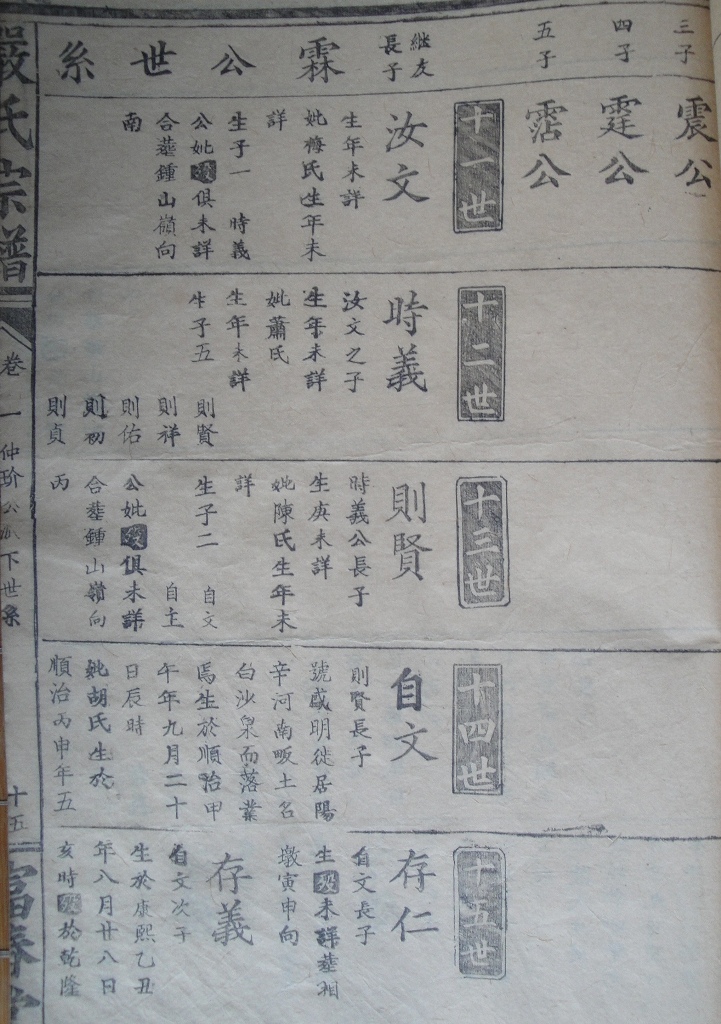 三子
震公
四子
霆公
五子
霑公
繼友
長子
霖公世系
十一世
汝文
生年未詳
妣梅氏生年未
詳
生子一 時義
公妣歿俱未詳
合塟鍾山嶺向
南
十二世
時義
汝文之子
生年未詳
妣蕭氏
生年未詳
生子五
則賢
則祥
則佑
則初
則貞
十三世
則賢
時義公長子
生庚未詳
妣陳氏生年未
詳
生子二 自文
自主
公妣歿俱未詳
合塟鍾山嶺向
丙
十四世
自文
則賢長子
號盛明徙居陽
辛河南畈土名
白沙泉而落業
焉生於順治甲
午年九月二十
日辰時
妣胡氏生於
順治丙申年五
十五世
存仁
自文長子
生歿未詳塟湘
墩寅申向
存義
自文次子
生於康熙乙丑
年八月廿八日
亥時歿於乾隆
嚴氏宗譜
卷一
仲玠公派下世系
十五
富春堂